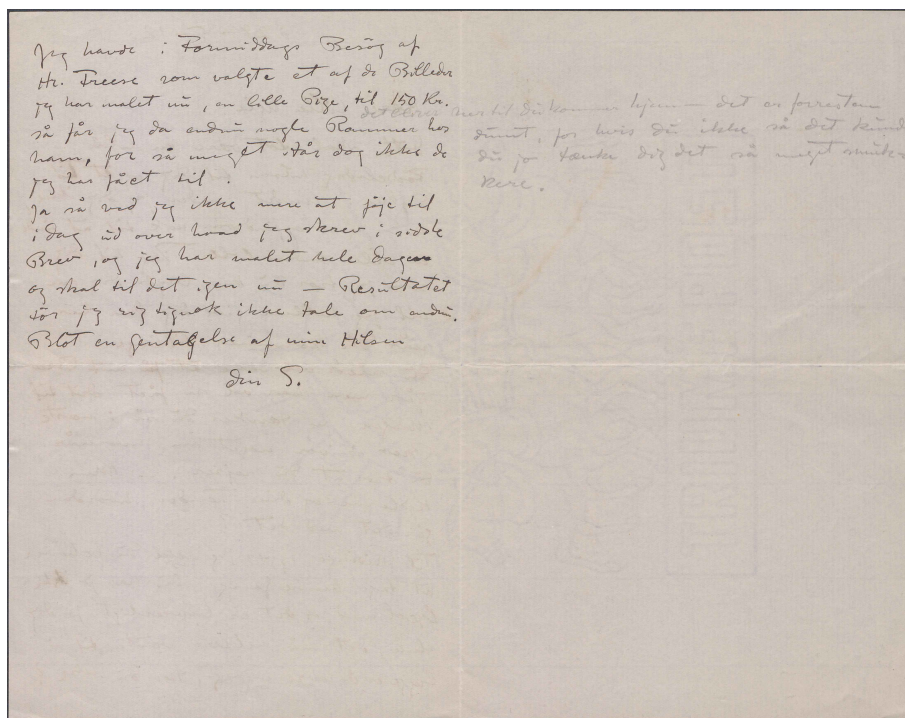 Jeg havde i Formiddags Besøg af
Hr. Freese som valgte et af de Billeder
jeg har malet nu, en lille Pige, til 150 Kr.
så får jeg da endnu nogle Rammer hos
ham, for så meget står dog ikke de
jeg har fået til.
Ja så ved jeg ikke mere at føje til
i dag ud over hvad jeg skrev i sidste
Brev, og jeg har malet hele dagen
og skal til det igen nu — Resultatet
tør jeg rigtignok ikke tale om endnu.
Blot en gentagelse af min Hilsen
din S.
det bliver her til du kommer hjem — det er forresten
dumt, for hvis du ikke så det kunde
du jo tænke dig det så meget smuk-
kere.